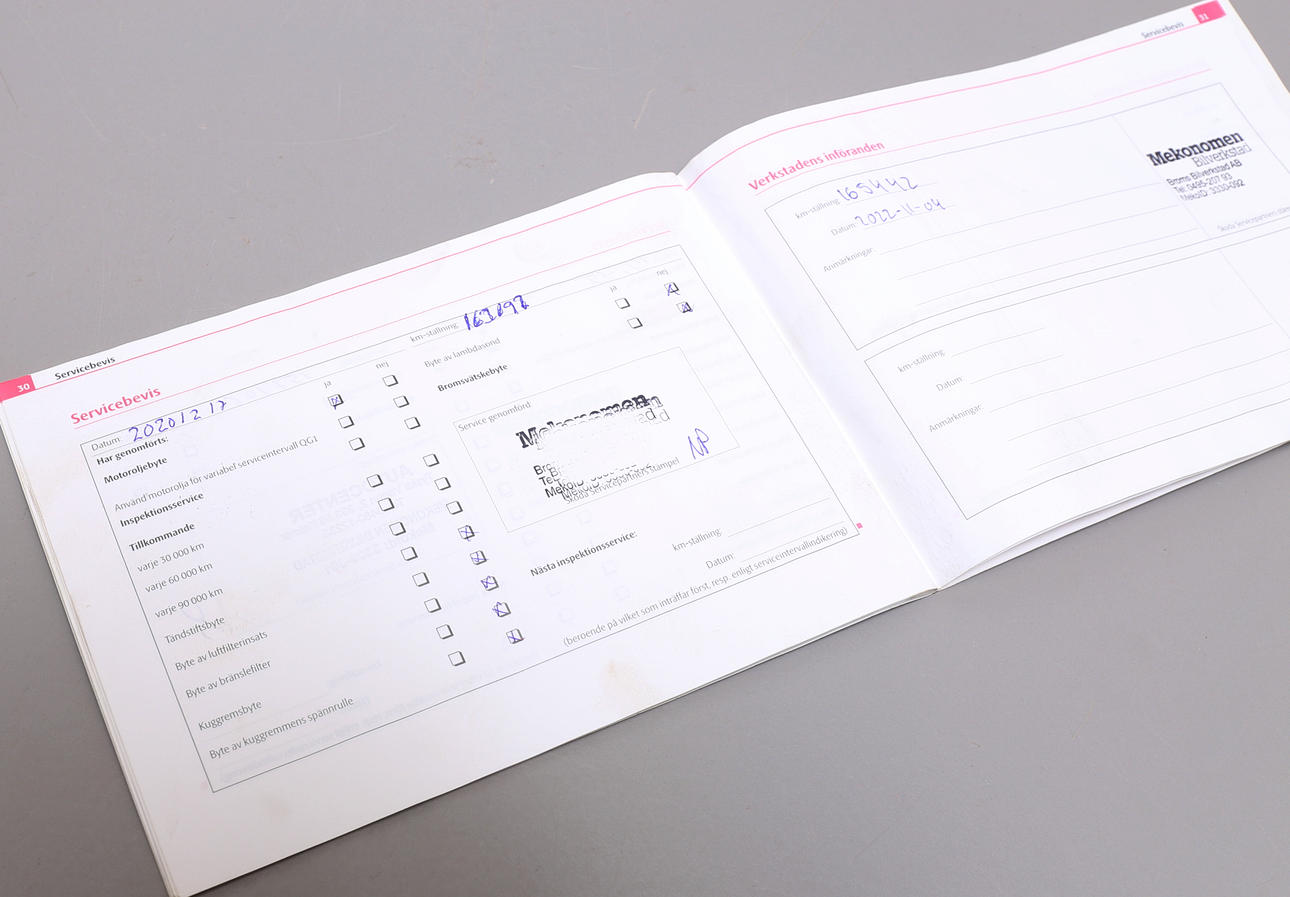 30 Servicebevis
Servicebevis
Datum: 20201217
km-ställning: 163192
Har genomförts:
ja nej
Motoroljebyte
Använd motorolja för variabel serviceintervall QG1
Inspektionsservice
Tillkommande
varje 30 000 km
varje 60 000 km
varje 90 000 km
Tändstiftsbyte
Byte av luftfilterinsats
Byte av bränslefilter
Kuggremsbyte
Byte av kuggremmens spännrulle
ja nej
Byte av lambdasond
Bromsvätskebyte
Service genomförd
Mekonomen
Skoda Servicepartners stämpel
NP
Nästa inspektionsservice:
km-ställning:
Datum:
(beroende på vilket som inträffar först, resp. enligt serviceintervallindikering)
Servicebevis 31
Verkstadens införanden
km-ställning 165442
Datum: 2022-11-04
Anmärkningar:
Mekonomen
Bilverkstad
Broms Bilverkstad AB
Tel. 0495-207 93
MekoID: 3330-092
Skoda Servicepartners
km-ställning:
Datum:
Anmärkningar: